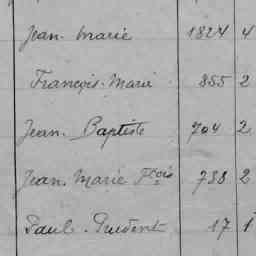 Jean-Marie 1824 4
François-Marie 855 2
Jean-Baptiste 704 2
Jean Marie Fçois 738 2
Paul-Prudent 17 1